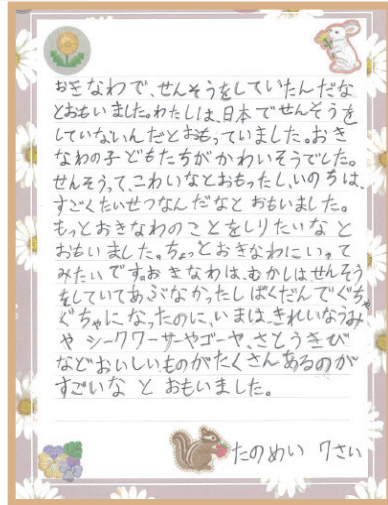 おきなわで、せんそうをしていたんだな
とおもいました。わたしは、日本でせんそうを
していないんだとおもっていました。おき
なわの子どもたちがかわいそうでした。
せんそうって、こわいなとおもったし、いのちは、
すごくたいせつなんだなとおもいました。
もっとおきなわのことをしりたいなと
おもいました。ちょっとおきなわにいって
みたいです。おきなわは、むかしはせんそう
をしていてあぶなかったしばくだんでぐちゃ
ぐちゃになったのに、いまは、きれいなうみ
やシークワーサーやゴーヤ、さとうきび
などおいしいものがたくさんあるのが
すごいなとおもいました。
たのめい 7さい